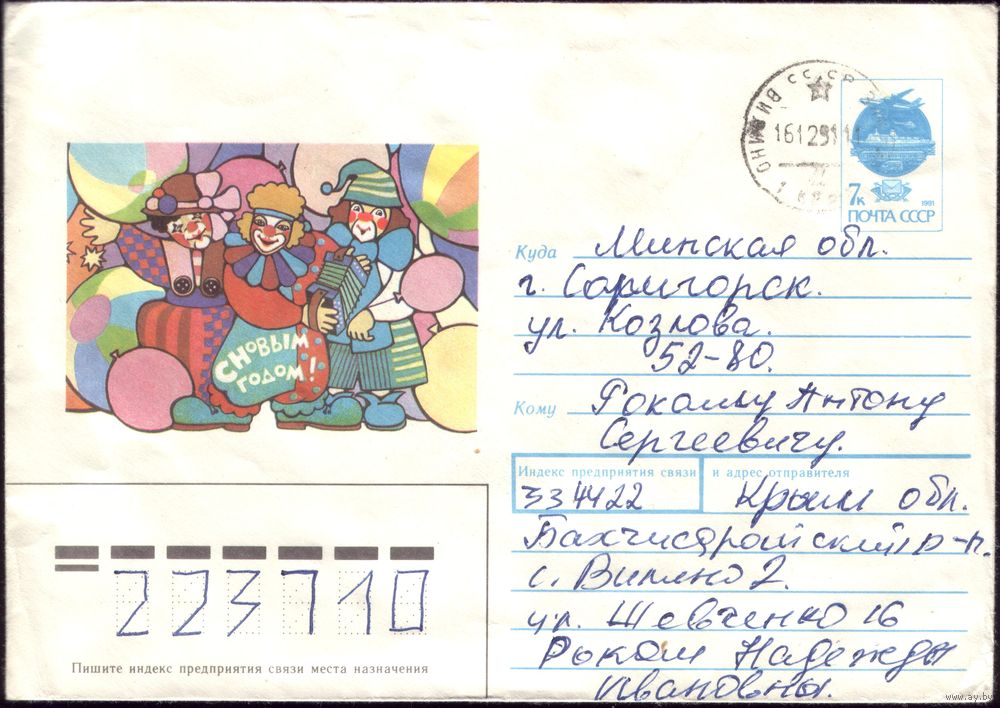 СССР
16129114
7к
1991
ПОЧТА СССР
С НОВЫМ
ГОДОМ!
Куда Минская обл.
г. Саригорск.
ул. Козлова.
52-80.
Кому Рокашу Антону
Сергеевичу.
Индекс предприятия связи и адрес отправителя
334422 Крым обл.
Бахчисарайский р-н.
с. Вилино 2.
ул. Шевченко 16
Рокаш Надежды
Ивановны.
223710
Пишите индекс предприятия связи места назначения
www.ay.by